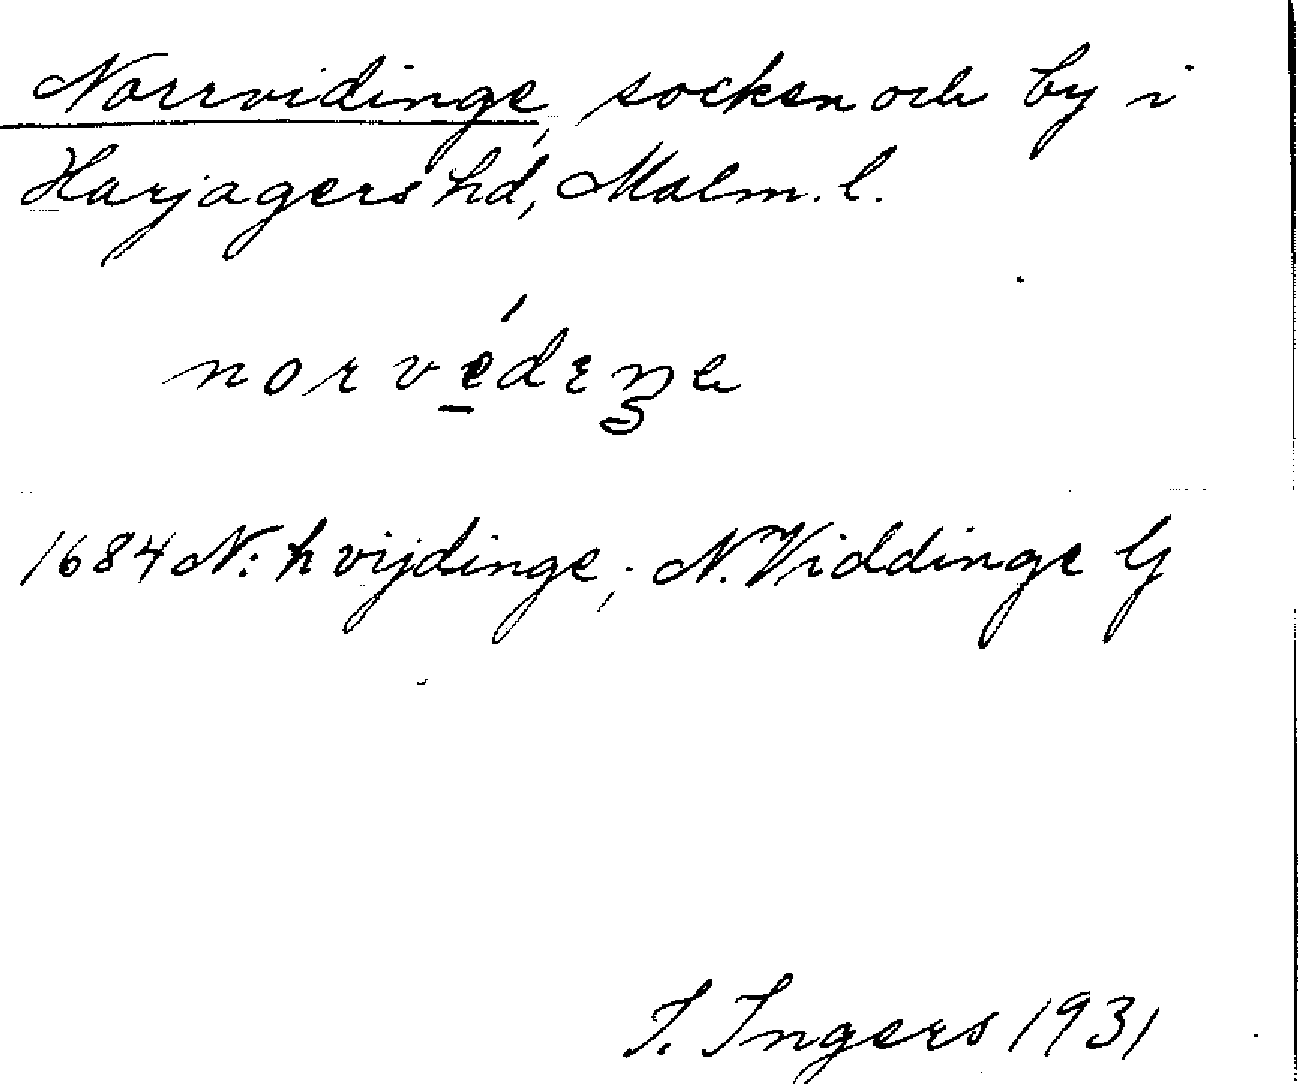 Norrvidinge, socken och by i
Harjagers hd, Malm. l.
norvédɛŋe
1684 N: hvijdinge; N. Viddinge G
I. Ingers 1931